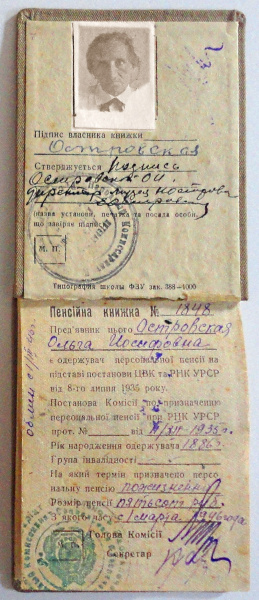 Підпис власника книжки
Островская
Стверджується подпись
Островской О.И.
директор музея Н. Островского
(назва установи, печатка та посада особи,
що завіряє підпис)
М. П.
Типография школы ФЗУ зак. 388—1000
Пенсійна книжка № 1348
Пред'явник цього Островская
Ольга Иосифовна
є одержувач персональної пенсії на
підставі постанови ЦВК та РНК УРСР
від 8-го липня 1935 року.
Постанова Комісії по призначенню
персональної пенсії при РНК УРСР
прот. № від
Рік народження одержувача
Група інвалідності
На який термін призначено персо-
нальну пенсію пожизненно
Розмір пенсії пятьсот руб.
З якого часу с 1 марта 1946 года
Голова Комісії
Секретар